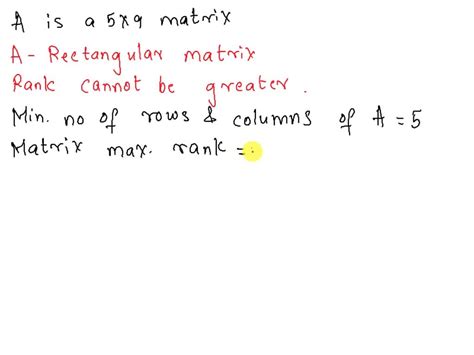 A is a 5×9 matrix
A - Rectangular matrix
Rank cannot be greater.
Min. no of rows & columns of A = 5
Matrix max. rank =